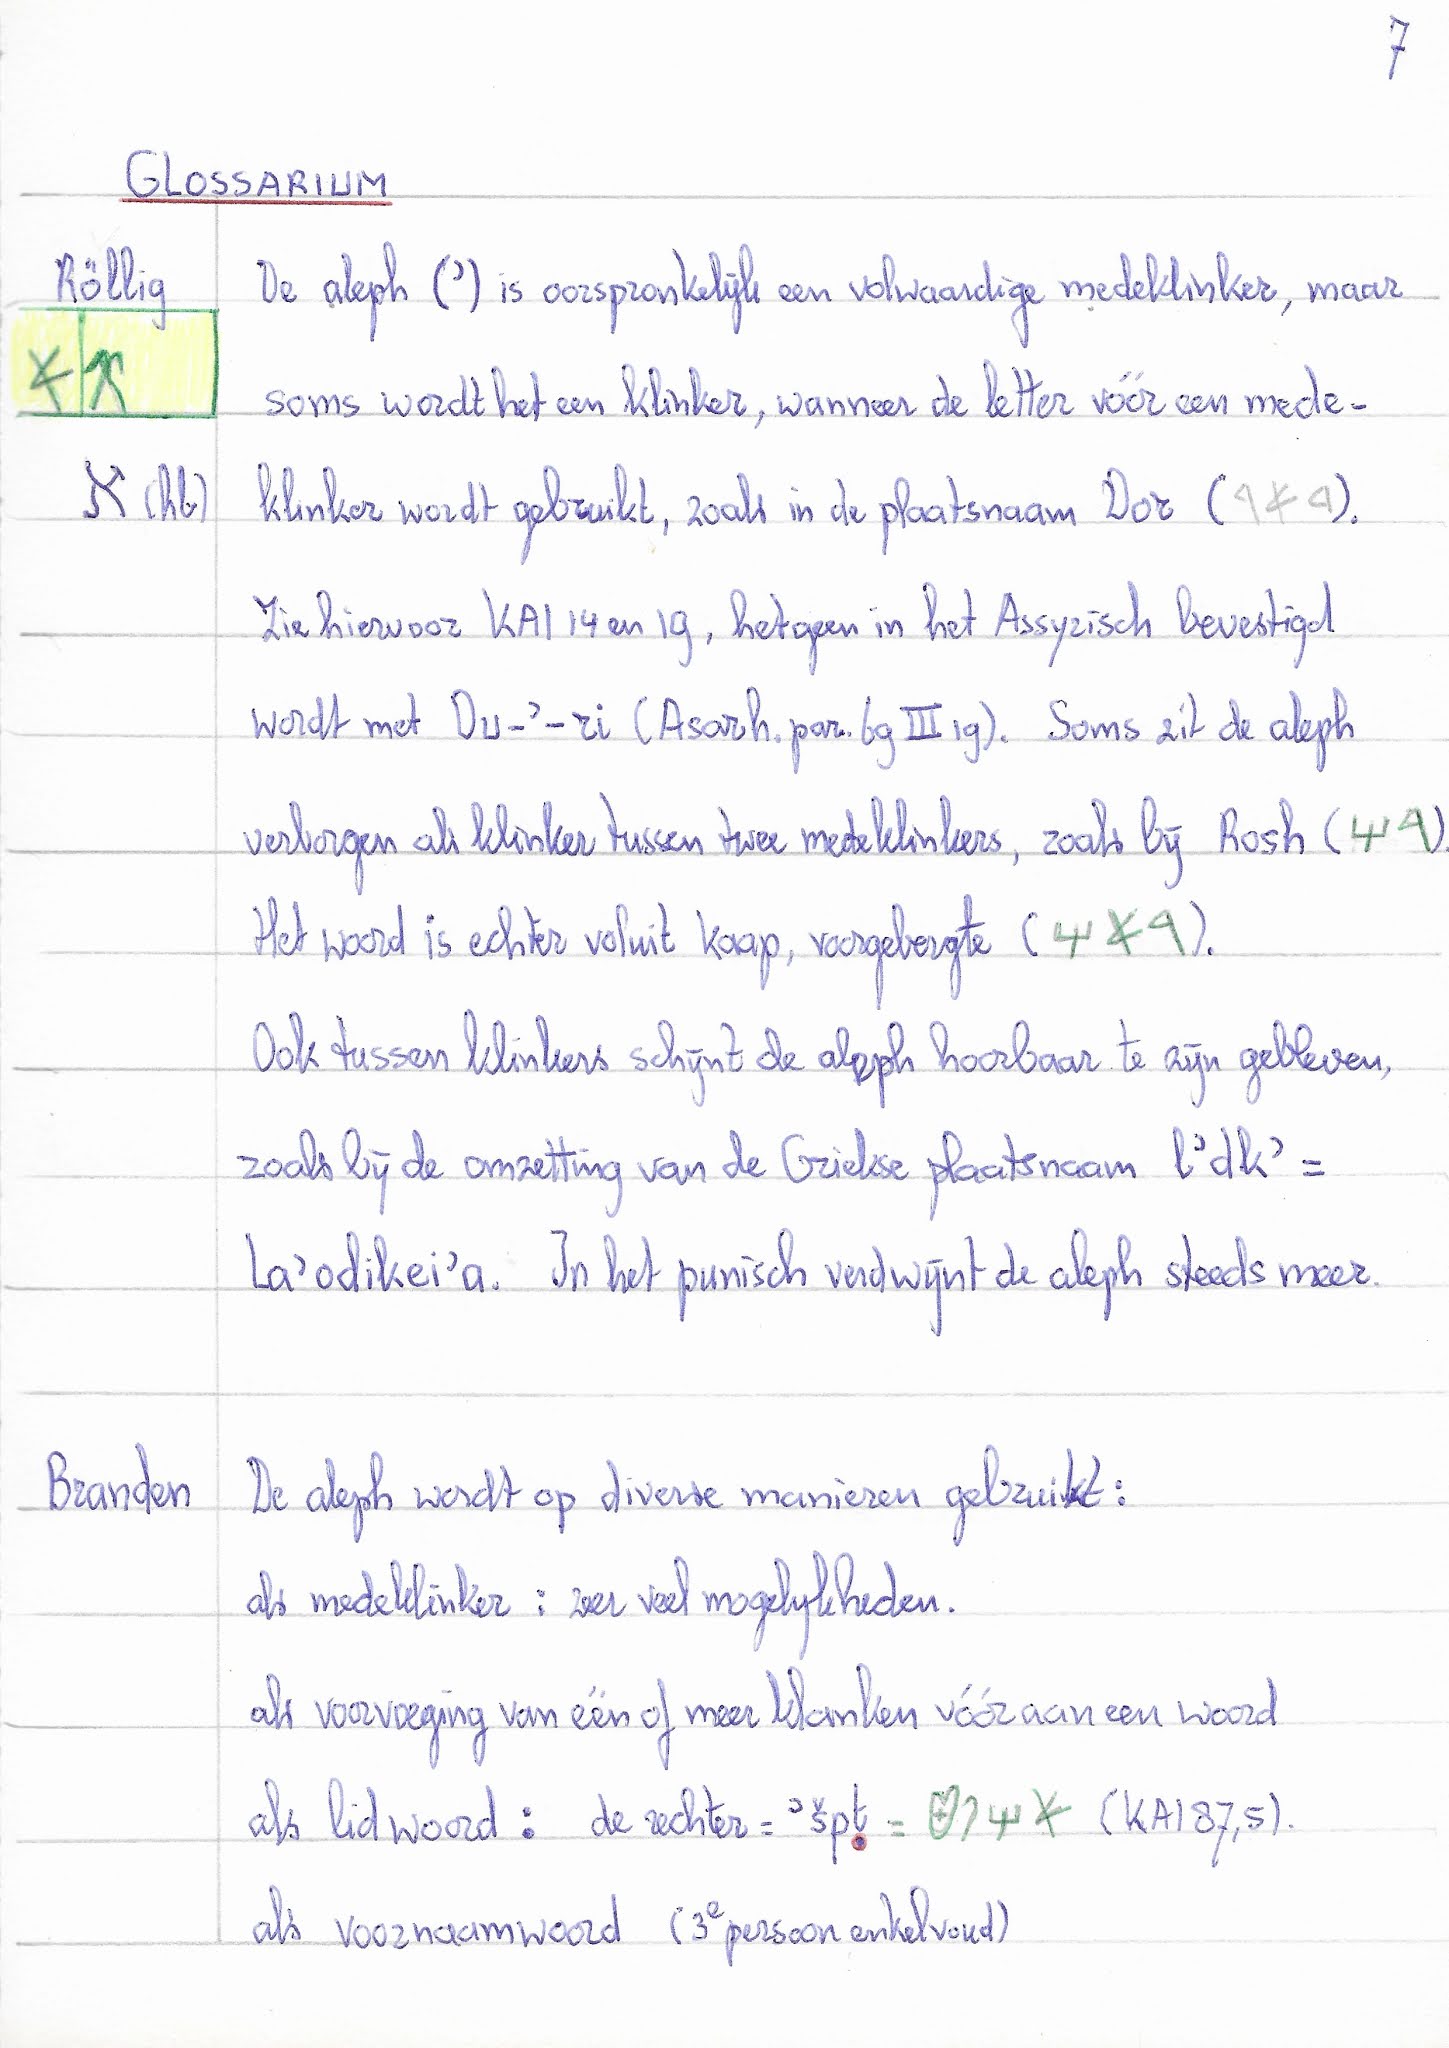 7
GLOSSARIUM
Röllig De aleph (ʾ) is oorspronkelijk een volwaardige medeklinker, maar
𐤀 soms wordt het een klinker, wanneer de letter vóór een mede-
א (hb) klinker wordt gebruikt, zoals in de plaatsnaam Dor (𐤃𐤀𐤓).
Zie hiervoor KAI 14 en 19, hetgeen in het Assyrisch bevestigd
wordt met Du-ʾ-ri (Asarh. par. 69 III 19). Soms zit de aleph
verborgen als klinker tussen twee medeklinkers, zoals bij Rosh (𐤓𐤔).
Het woord is echter voluit kaap, voorgebergte (𐤓𐤀𐤔).
Ook tussen klinkers schijnt de aleph hoorbaar te zijn gebleven,
zoals bij de omzetting van de Griekse plaatsnaam lʾdkʾ =
Laʾodikeiʾa. In het punisch verdwijnt de aleph steeds meer.
Branden De aleph wordt op diverse manieren gebruikt:
als medeklinker : zeer veel mogelijkheden.
als voorvoeging van één of meer klanken vóóraan een woord
als lidwoord : de rechter = ʾšpṭ = 𐤀𐤔𐤐𐤈 (KAI 87,5).
als voornaamwoord (3e persoon enkelvoud)